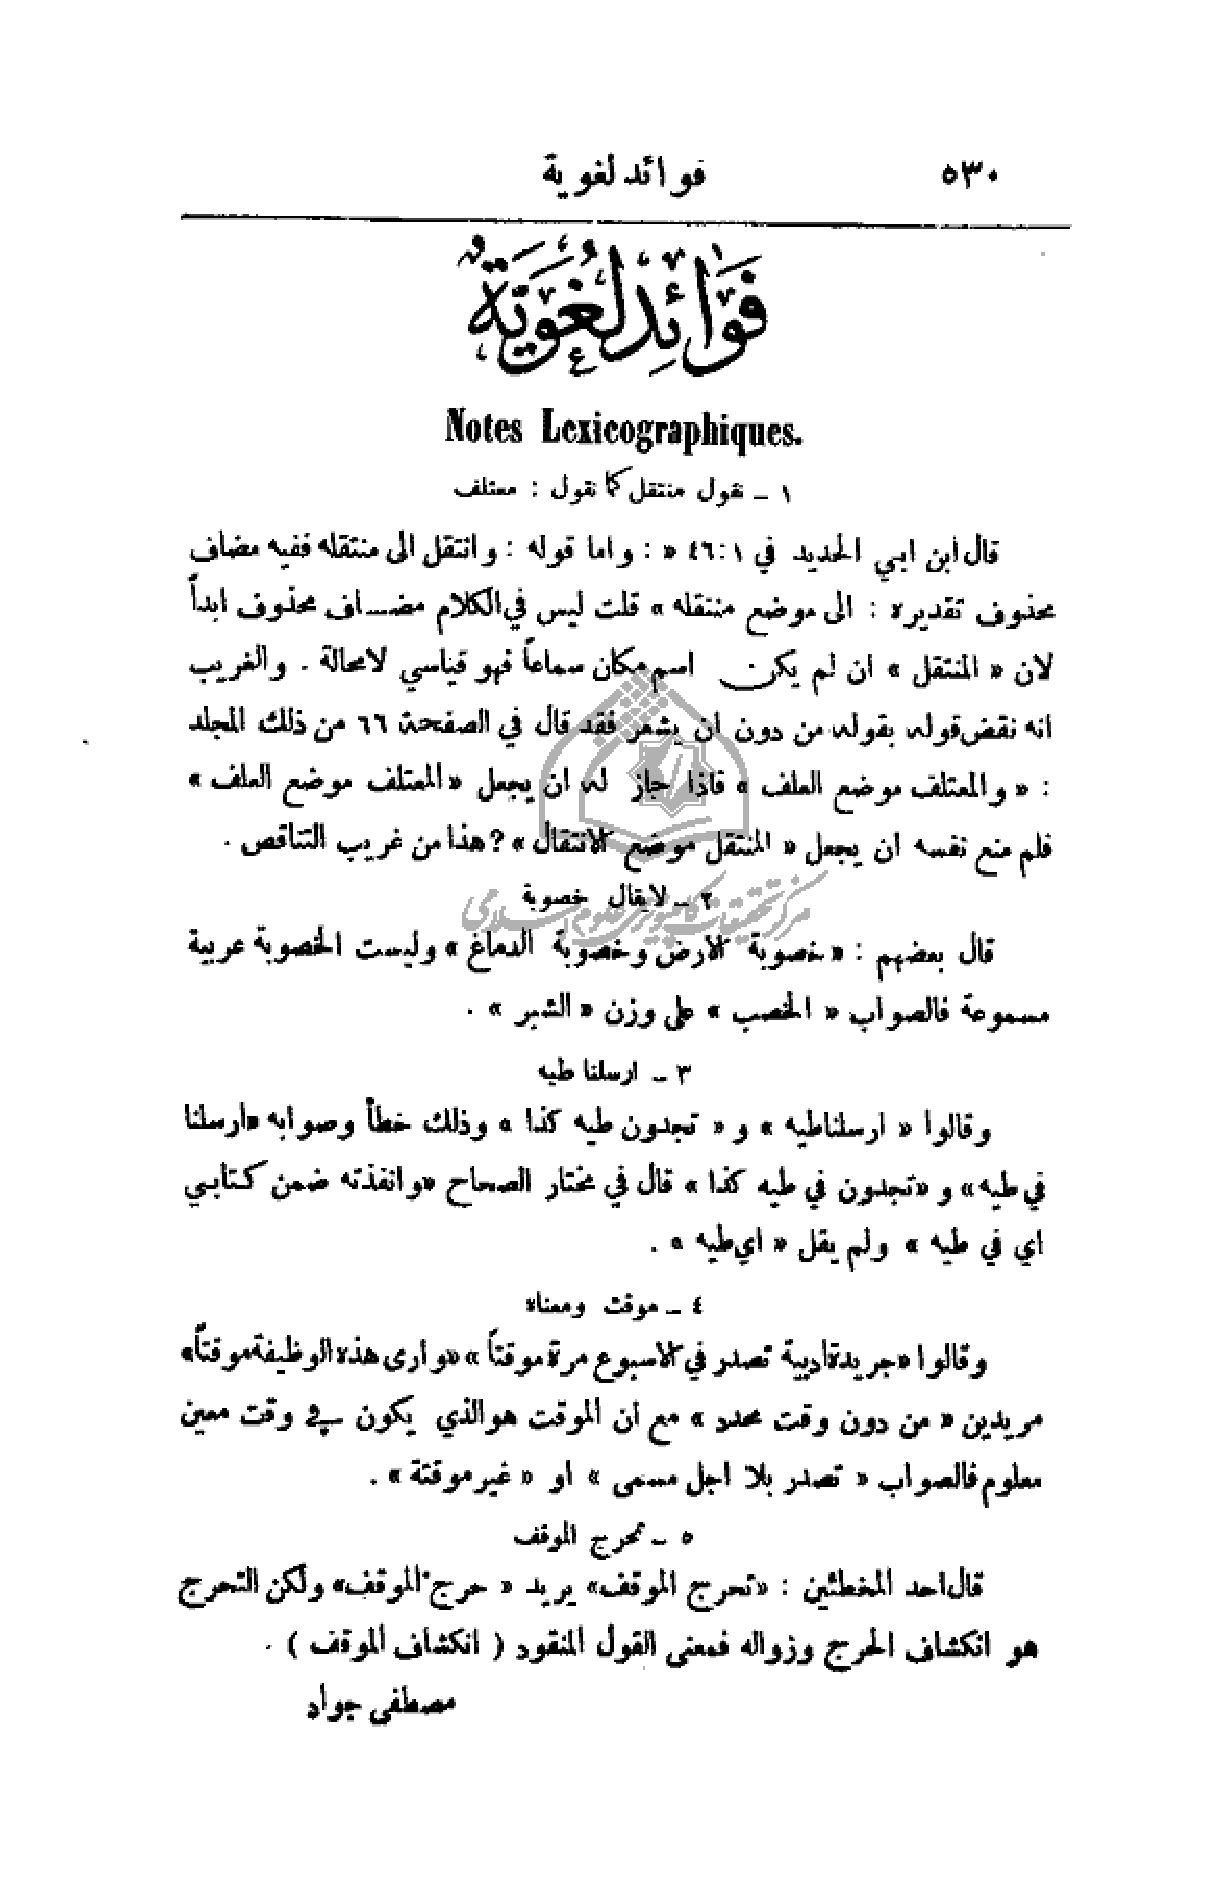 ٥٣٠ فوائد لغوية
فَوَائِد لُغَوِيَّة
Notes Lexicographiques.
١ ـ نقول منتقل كما نقول : معتلف
قال ابن ابي الحديد في ٤٦:١ « : واما قوله : وانتقل الى منتقله ففيه مضاف
محذوف تقديره : الى موضع منتقله » قلت ليس في الكلام مضاف محذوف ابداً
لان « المنتقل » ان لم يكن اسم مكان سماعاً فهو قياسي لامحالة . والغريب
انه نقض قوله بقوله من دون ان يشعر فقد قال في الصفحة ٦٦ من ذلك المجلد
: « والمعتلف موضع العلف » فاذا جاز له ان يجعل «المعتلف موضع العلف »
فلم منع نفسه ان يجعل « المنتقل موضع الانتقال » ? هذا من غريب التناقص .
مركز تحقيقات كامپيوتري علوم اسلامي
٢ ـ لايقال خصوبة
قال بعضهم : « خصوبة الارض وخصوبة الدماغ » وليست الخصوبة عربية
مسموعة فالصواب « الخصب » على وزن « الشبر » .
٣ ـ ارسلنا طيه
وقالوا « ارسلنا طيه » و « تجدون طيه كذا » وذلك خطأ وصوابه «ارسلنا
في طيه» و «تجدون في طيه كذا » قال في مختار الصحاح «وانفذته ضمن كتابي
اي في طيه » ولم يقل « اي طيه » .
٤ ـ موقت ومعناه
وقالوا «جريدة ادبية تصدر في الاسبوع مرة موقتاً » «وارى هذه الوظيفة موقتاً»
مريدين « من دون وقت محدد » مع ان الموقت هو الذي يكون في وقت معين
معلوم فالصواب « تصدر بلا اجل مسمى » او « غير موقتة » .
٥ ـ تحرج الموقف
قال احد المخطئين : «تحرج الموقف» يريد « حرج الموقف» ولكن التحرج
هو انكشاف الحرج وزواله فمعنى القول المنقود ( انكشاف الموقف ) .
مصطفى جواد